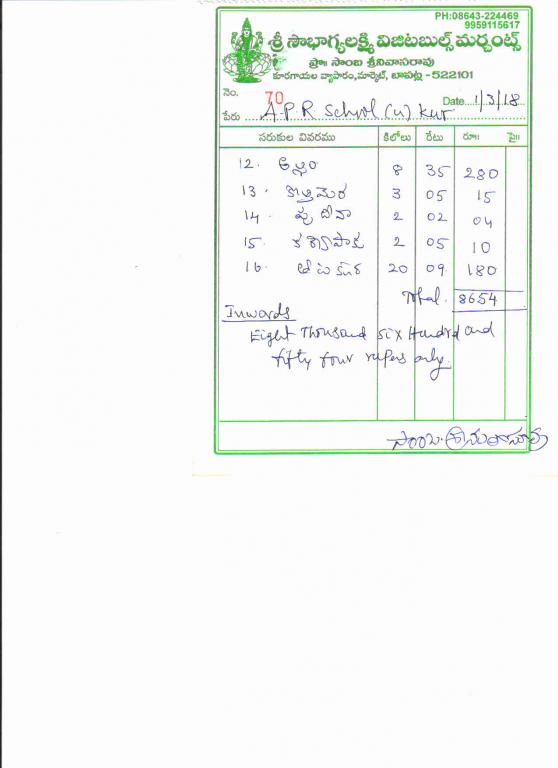 PH:08643-224469
9959115617
శ్రీ సౌభాగ్యలక్ష్మి విజిటబుల్స్ మర్చంట్స్
ప్రొ॥ సాంబ శ్రీనివాసరావు
కూరగాయల వ్యాపారం, మార్కెట్, బాపట్ల - 522101
నెం. 70 Date 1/3/18
పేరు A.P.R School (u) Kur
సరుకుల వివరము కిలోలు రేటు రూ॥ పై॥
12. అల్లం 8 35 280
13. కొత్తిమెర 3 05 15
14. పుదీనా 2 02 04
15. కరివేపాకు 2 05 10
16. తోటకూర 20 09 180
Total. 8654
Inwards
Eight Thousand six Hundrd and
fifty four rupees only.
సాంబ.శ్రీనివాసరావు